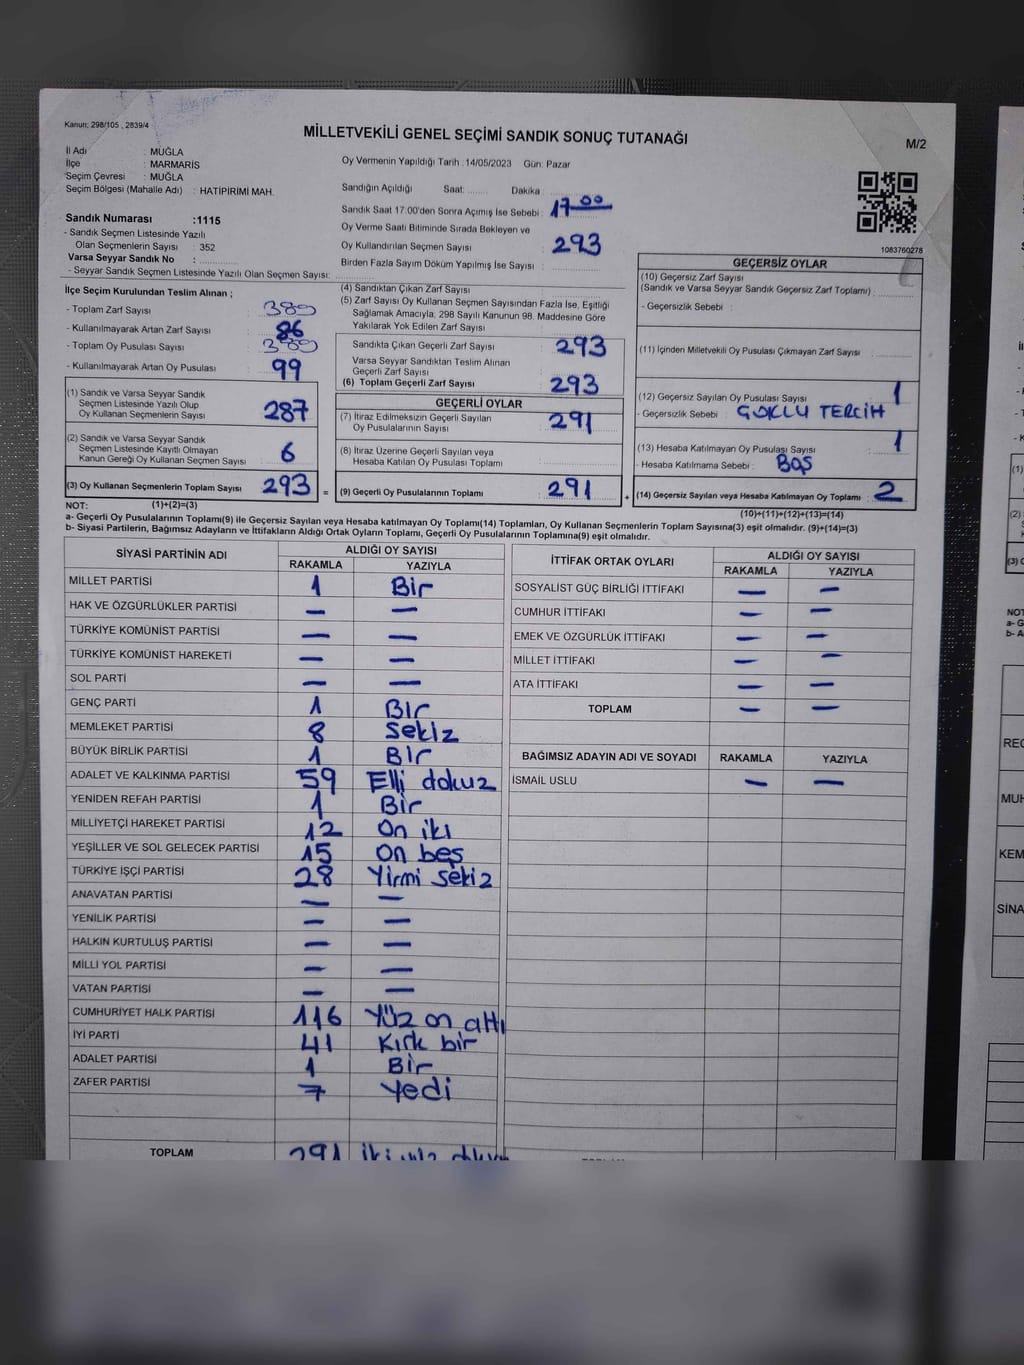 Kanun; 298/105 , 2839/4
MİLLETVEKİLİ GENEL SEÇİMİ SANDIK SONUÇ TUTANAĞI
M/2
İl Adı : MUĞLA
İlçe : MARMARİS
Seçim Çevresi : MUĞLA
Seçim Bölgesi (Mahalle Adı) : HATİPİRİMİ MAH.
Sandık Numarası :1115
- Sandık Seçmen Listesinde Yazılı
Olan Seçmenlerin Sayısı : 352
Varsa Seyyar Sandık No :
- Seyyar Sandık Seçmen Listesinde Yazılı Olan Seçmen Sayısı:
Oy Vermenin Yapıldığı Tarih :14/05/2023 Gün: Pazar
Sandığın Açıldığı Saat: Dakika
Sandık Saat 17.00'den Sonra Açımış İse Sebebi : 17 00
Oy Verme Saati Bitiminde Sırada Bekleyen ve
Oy Kullandırılan Seçmen Sayısı : 293
Birden Fazla Sayım Döküm Yapılmış İse Sayısı :
1083760278
İlçe Seçim Kurulundan Teslim Alınan ;
- Toplam Zarf Sayısı : 380
- Kullanılmayarak Artan Zarf Sayısı : 86
- Toplam Oy Pusulası Sayısı : 380
- Kullanılmayarak Artan Oy Pusulası : 99
(1) Sandık ve Varsa Seyyar Sandık
Seçmen Listesinde Yazılı Olup
Oy Kullanan Seçmenlerin Sayısı : 287
(2) Sandık ve Varsa Seyyar Sandık
Seçmen Listesinde Kayıtlı Olmayan
Kanun Gereği Oy Kullanan Seçmen Sayısı : 6
(3) Oy Kullanan Seçmenlerin Toplam Sayısı : 293 =
(4) Sandıktan Çıkan Zarf Sayısı :
(5) Zarf Sayısı Oy Kullanan Seçmen Sayısından Fazla İse, Eşitliği
Sağlamak Amacıyla; 298 Sayılı Kanunun 98. Maddesine Göre
Yakılarak Yok Edilen Zarf Sayısı :
Sandıkta Çıkan Geçerli Zarf Sayısı : 293
Varsa Seyyar Sandıktan Teslim Alınan
Geçerli Zarf Sayısı :
(6) Toplam Geçerli Zarf Sayısı : 293
GEÇERLİ OYLAR
(7) İtiraz Edilmeksizin Geçerli Sayılan
Oy Pusulalarının Sayısı : 291
(8) İtiraz Üzerine Geçerli Sayılan veya
Hesaba Katılan Oy Pusulası Toplamı :
(9) Geçerli Oy Pusulalarının Toplamı : 291 +
GEÇERSİZ OYLAR
(10) Geçersiz Zarf Sayısı
(Sandık ve Varsa Seyyar Sandık Geçersiz Zarf Toplamı) :
- Geçersizlik Sebebi :
(11) İçinden Milletvekili Oy Pusulası Çıkmayan Zarf Sayısı :
(12) Geçersiz Sayılan Oy Pusulası Sayısı : 1
- Geçersizlik Sebebi : ÇOKLU TERCİH
(13) Hesaba Katılmayan Oy Pusulası Sayısı : 1
- Hesaba Katılmama Sebebi : BOŞ
(14) Geçersiz Sayılan veya Hesaba Katılmayan Oy Toplamı : 2
NOT: (1)+(2)=(3)
(10)+(11)+(12)+(13)=(14)
a- Geçerli Oy Pusulalarının Toplamı(9) ile Geçersiz Sayılan veya Hesaba katılmayan Oy Toplamı(14) Toplamları, Oy Kullanan Seçmenlerin Toplam Sayısına(3) eşit olmalıdır. (9)+(14)=(3)
b- Siyasi Partilerin, Bağımsız Adayların ve İttifakların Aldığı Ortak Oyların Toplamı, Geçerli Oy Pusulalarının Toplamına(9) eşit olmalıdır.
SİYASİ PARTİNİN ADI ALDIĞI OY SAYISI
RAKAMLA YAZIYLA
MİLLET PARTİSİ 1 Bir
HAK VE ÖZGÜRLÜKLER PARTİSİ — —
TÜRKİYE KOMÜNİST PARTİSİ — —
TÜRKİYE KOMÜNİST HAREKETİ — —
SOL PARTİ — —
GENÇ PARTİ 1 Bir
MEMLEKET PARTİSİ 8 Sekiz
BÜYÜK BİRLİK PARTİSİ 1 Bir
ADALET VE KALKINMA PARTİSİ 59 Elli dokuz
YENİDEN REFAH PARTİSİ 1 Bir
MİLLİYETÇİ HAREKET PARTİSİ 12 On iki
YEŞİLLER VE SOL GELECEK PARTİSİ 15 On beş
TÜRKİYE İŞÇİ PARTİSİ 28 Yirmi sekiz
ANAVATAN PARTİSİ — —
YENİLİK PARTİSİ — —
HALKIN KURTULUŞ PARTİSİ — —
MİLLİ YOL PARTİSİ — —
VATAN PARTİSİ — —
CUMHURİYET HALK PARTİSİ 116 Yüz on altı
İYİ PARTİ 41 Kırk bir
ADALET PARTİSİ 1 Bir
ZAFER PARTİSİ 7 Yedi
TOPLAM 291
İTTİFAK ORTAK OYLARI ALDIĞI OY SAYISI
RAKAMLA YAZIYLA
SOSYALİST GÜÇ BİRLİĞİ İTTİFAKI — —
CUMHUR İTTİFAKI — —
EMEK VE ÖZGÜRLÜK İTTİFAKI — —
MİLLET İTTİFAKI — —
ATA İTTİFAKI — —
TOPLAM — —
BAĞIMSIZ ADAYIN ADI VE SOYADI RAKAMLA YAZIYLA
İSMAİL USLU — —